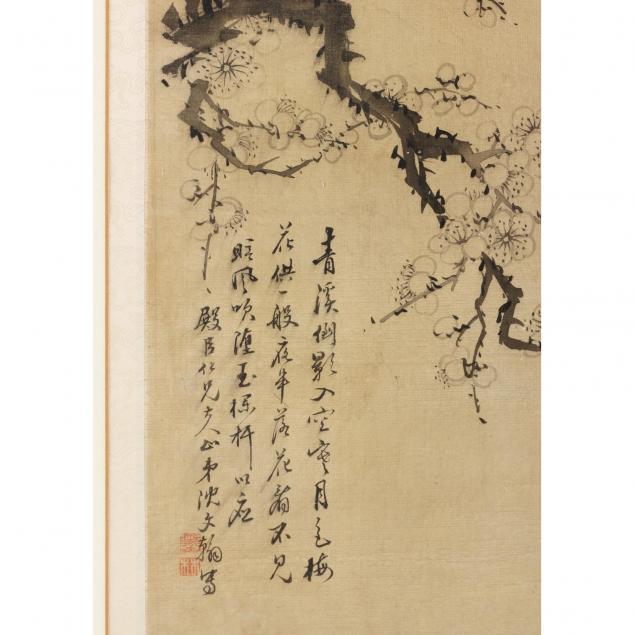 青溪倒影入空寒月色梅
花供一般夜半落花看不見
暗風吹墮玉欄杆以应
殿臣仁兄大人正弟沈文翰寫